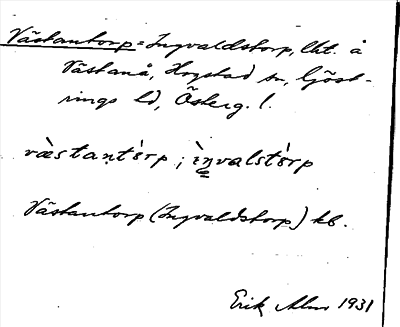 Västantorp = Ingvaldstorp, lht. å
Västanå, Hogstad sn, Göst-
rings hd, Österg. l.
væ̀stant\u00f3rp ; ìŋvalstórp
Västantorp (Ingvaldstorp) kb.
Erik Alm 1931